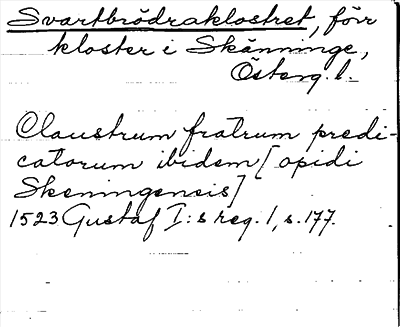 Svartbrödraklostret, förr
kloster i Skänninge,
Österg. l.
Claustrum fratrum predi-
catorum ibidem [opidi
Skeningensis]
1523 Gustaf I:s reg. 1, s. 177.